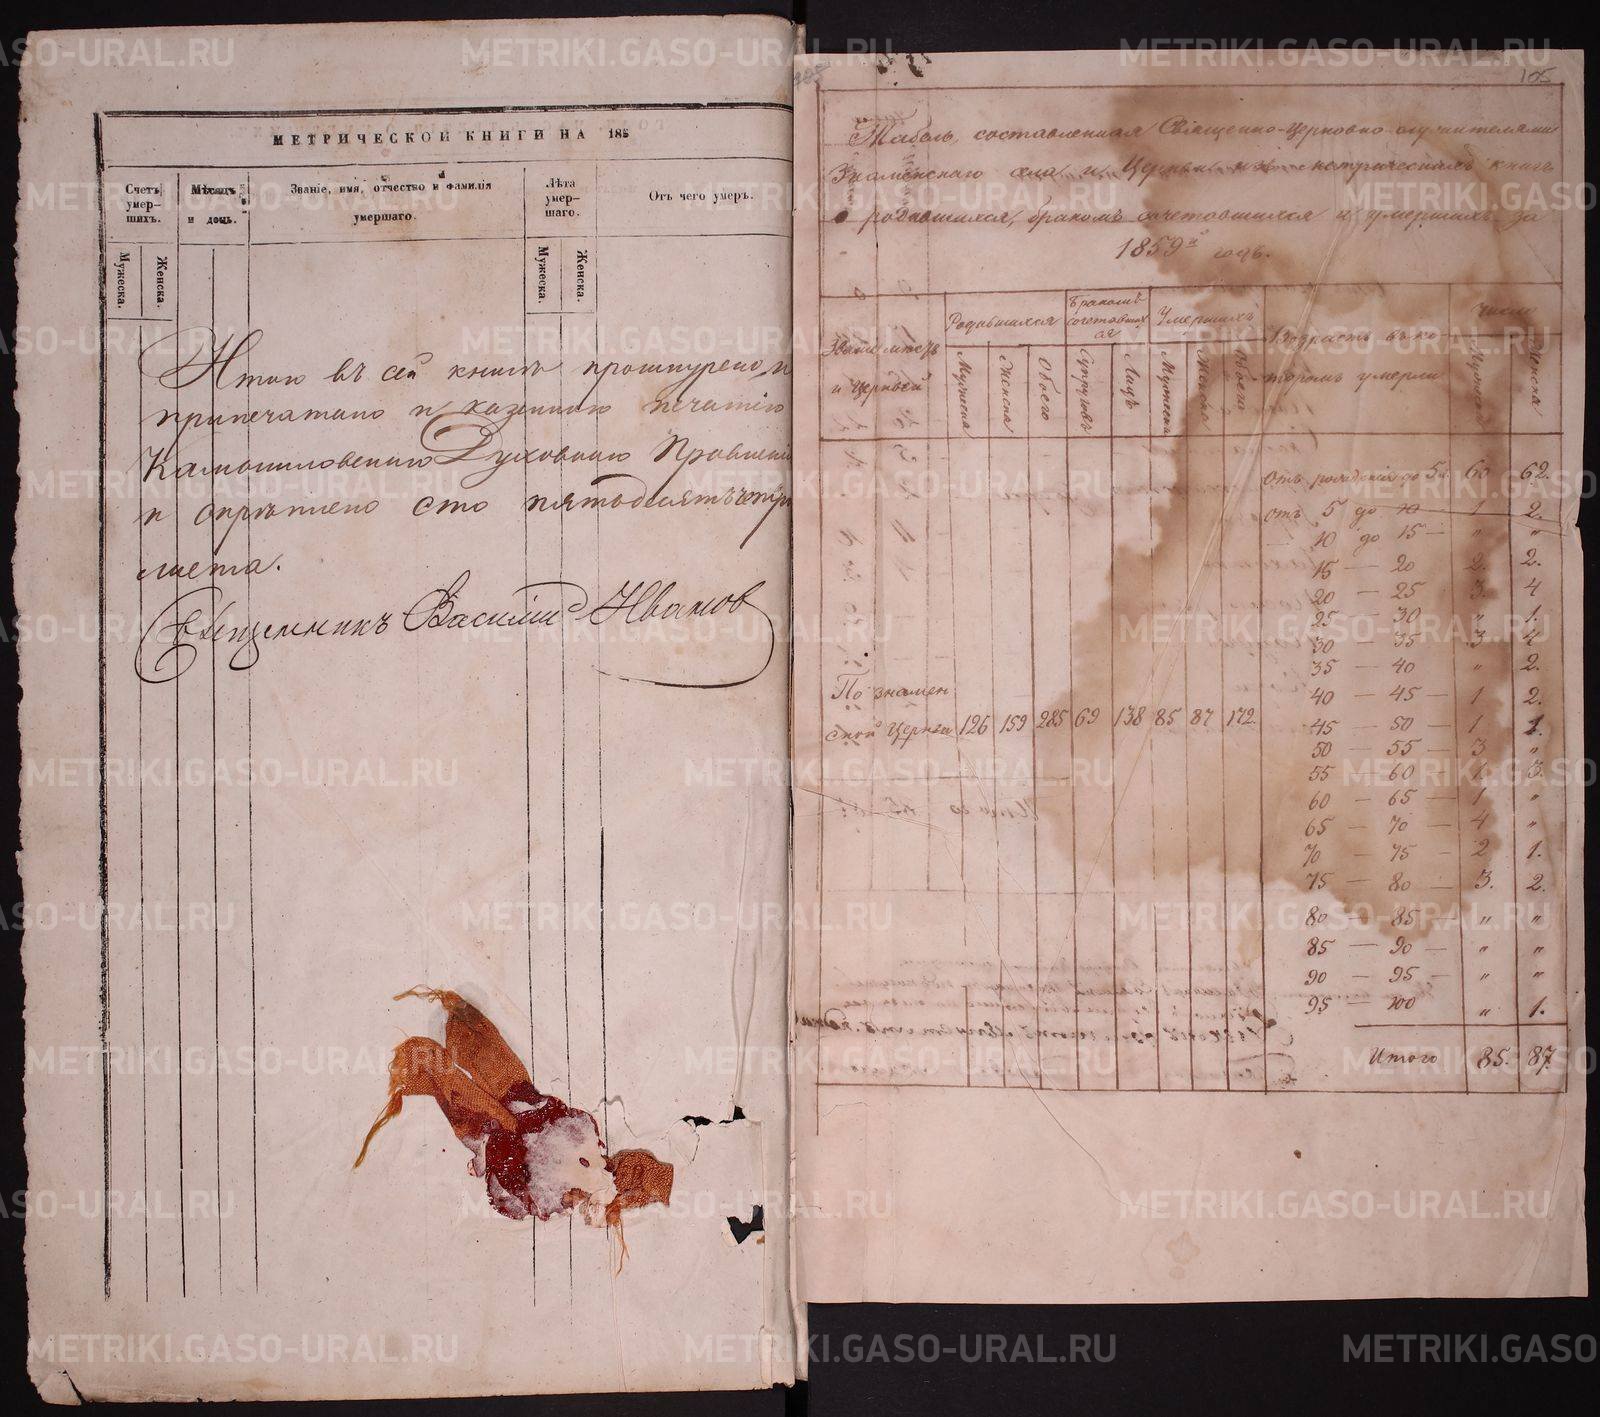 МЕТРИЧЕСКОЙ КНИГИ НА 185
Счетъ умер-шихъ.
Мѣсяцъ и день.
Званіе, имя, отчество и фамилія умершаго.
Лѣта умер-шаго.
Отъ чего умеръ.
Мужеска.
Женска.
Мужеска.
Женска.
Итого въ сей книгѣ прошнурено, и
припечатано и казенною печатію
Камышловскаго Духовнаго Правленія
и скрѣплено сто пятьдесятъ четыре
листа.
Священникъ Василій Иванов
105
Табель, составленная Священно-церковно-служителями
Знаменскаго села и Церкви изъ метрическихъ книгъ
о родившихся, бракомъ сочетавшихся и умершихъ за
1859й годъ.
Званіе мѣстъ и Церквей
Родившихся
Бракомъ сочетавшихся
Умершихъ
Возрастъ въ ко-торомъ умерли
Число
Мужеска
Женска
Обоего
Супруговъ
Лицъ
Мужеска
Женска
Обоего
Мужеска
Женска
Отъ рожденія до 5и 60 62.
отъ 5 до 10 1 2.
10 до 15 — „ „
15 — 20 2. 2.
20 — 25 3. 4
25 — 30 „ 1.
30 — 35 3 4
35 — 40 „ 2.
40 — 45 — 1 2.
По Знамен
ской Церкви 126 159 285 69 138 85 87 172
45 — 50 — 1 1.
50 — 55 — 3 „
55 — 60 — 1. 3.
60 — 65 — 1 „
65 — 70 — 4 „
70 — 75 — 2 1.
75 — 80 — 3. 2.
80 — 85 — „ „
85 — 90 — „ „
90 — 95 — „ „
95 — 100 „ 1.
Итого 85. 87.
METRIKI.GASO-URAL.RU